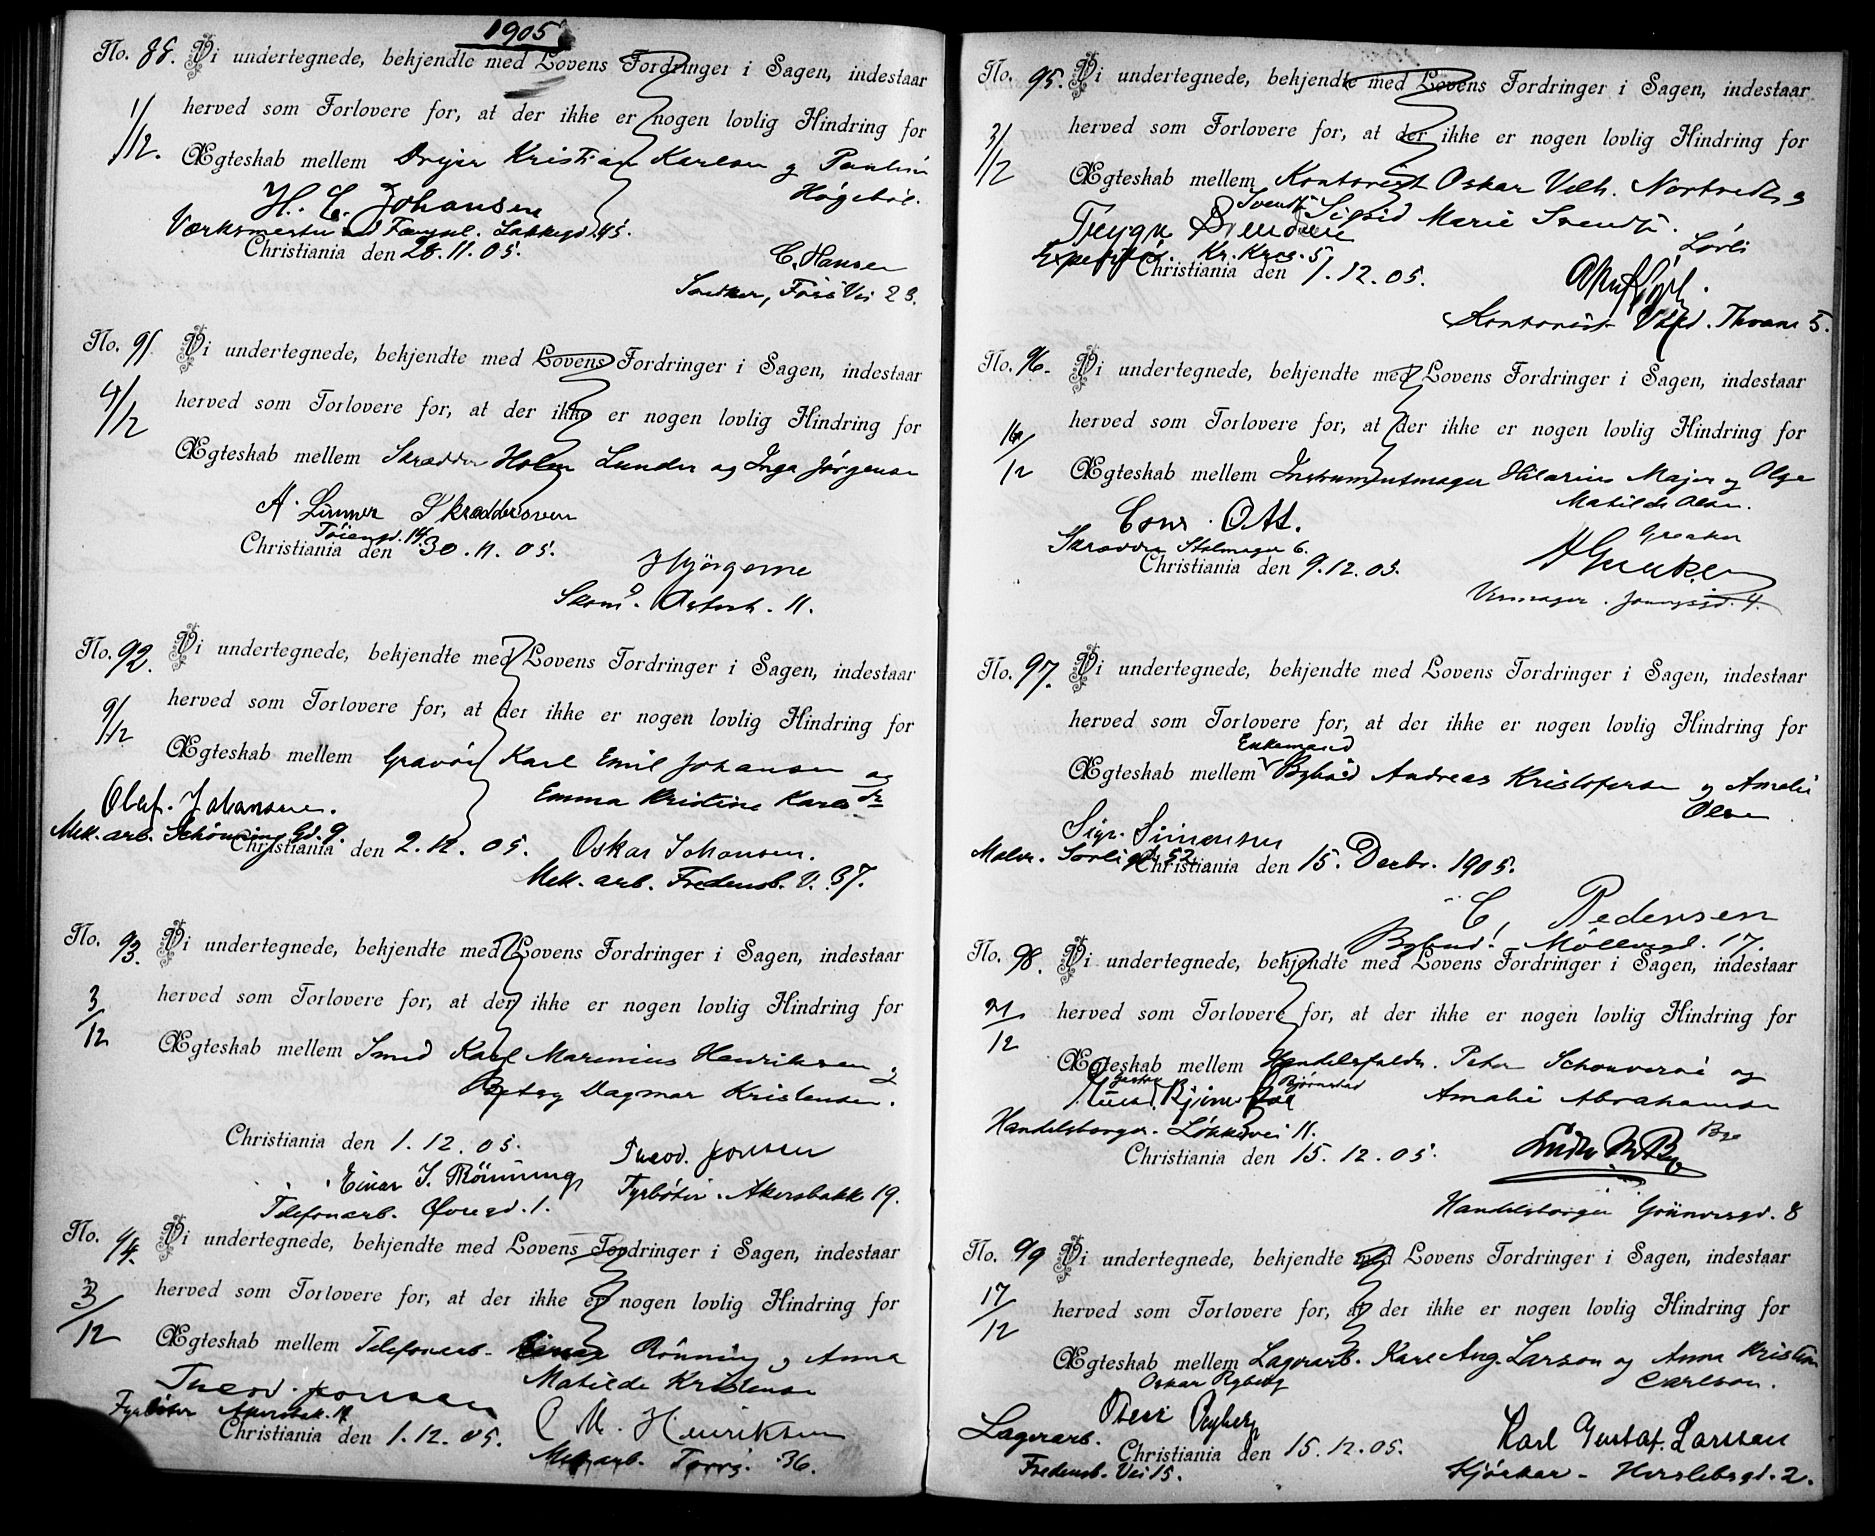 1905
No. 88. Vi undertegnede, bekjendte med Lovens Fordringer i Sagen, indestaar
1/12. herved som Forlovere for, at der ikke er nogen lovlig Hindring for
Ægteskab mellem Drejer Kristian Karlsen og Pauline
Høgebøl.
H. E. Johansen
Værksmester ved Fængsl. Lakkegd. 45.
Christiania den 28.11.05.
C. Hansen
Snedker, Foss Vei 23.
No. 91. Vi undertegnede, bekjendte med Lovens Fordringer i Sagen, indestaar
4/12 herved som Forlovere for, at der ikke er nogen lovlig Hindring for
Ægteskab mellem Skrædder Holm Lunder og Inga Jørgensen
A. Linner Skræddersven
Tøiengd. 14.
Christiania den 30.11.05.
Skom. Osterh. 11.
No. 92. Vi undertegnede, bekjendte med Lovens Fordringer i Sagen, indestaar
9/12 herved som Forlovere for, at der ikke er nogen lovlig Hindring for
Ægteskab mellem Gravør Karl Emil Johansen og
Emma Kristine Karlsdr
Olaf. Johansen.
Mek. arb. Schønning Gd. 9.
Christiania den 2.12.05.
Oskar Johansen.
Mek. arb. Fredensb. V. 37.
No. 93. Vi undertegnede, bekjendte med Lovens Fordringer i Sagen, indestaar
3/12 herved som Forlovere for, at der ikke er nogen lovlig Hindring for
Ægteskab mellem Smed Karl Marinius Henriksen og
Betsy Dagmar Kristensen.
Christiania den 1.12.05.
Theod. Jonssen
Einar J. Rönning
Fyrbøter. Akersbakk 19.
Telefonarb. Øvregd. 1.
No. 94. Vi undertegnede, bekjendte med Lovens Fordringer i Sagen, indestaar
3/12 herved som Forlovere for, at der ikke er nogen lovlig Hindring for
Ægteskab mellem Telefonarb. Einar Rønning og Anna
Matilde Kristensen
Theod. Jonssen
Fyrbøter Akersbak. 19
Christiania den 1.12.05.
C M. Henriksen
Mek. arb. Torvg. 36.
No. 95. Vi undertegnede, bekjendte med Lovens Fordringer i Sagen, indestaar
3/12 herved som Forlovere for, at der ikke er nogen lovlig Hindring for
Ægteskab mellem Kontorist Oskar Vilh. Nortvedt og
Sigrid Marie Svendsen.
Trygve Svendsen
Expeditør. Kr. Krog. 5
Løvli
Christiania den 1.12.05.
Kontorist Thranes 5.
No. 96. Vi undertegnede, bekjendte med Lovens Fordringer i Sagen, indestaar
16/12 herved som Forlovere for, at der ikke er nogen lovlig Hindring for
Ægteskab mellem Instrumentmager Hilarius Majer og Olga
Matilde Olsen.
Conr. Ott.
Greaker
Skrædder Stolmager 6.
Christiania den 9.12.05.
A Greaker
No. 97. Vi undertegnede, bekjendte med Lovens Fordringer i Sagen, indestaar
herved som Forlovere for, at der ikke er nogen lovlig Hindring for
Enkemand
Ægteskab mellem Bybud Andreas Kristofersen og Amalie
Olsen
Sigv. Simensen
Maler. Sørligd. 52
Christiania den 15. Decbr. 1905.
C. Pedersen
Bybud. Møllergd. 17.
No. 98. Vi undertegnede, bekjendte med Lovens Fordringer i Sagen, indestaar
21/12 herved som Forlovere for, at der ikke er nogen lovlig Hindring for
Ægteskab mellem Handelsfuldm. Peter Schouverøe og
Amalie Abrahamsen
Bjørnstad
Handelsborger. Løkkevei 11.
Christiania den 15.12.05.
Bye
Handelsborger Grünersgd. 8
No. 99 Vi undertegnede, bekjendte med Lovens Fordringer i Sagen, indestaar
17/12 herved som Forlovere for, at der ikke er nogen lovlig Hindring for
Ægteskab mellem Lagerarb. Karl Aug. Larson og Anna Kristina
Carlson.
Oskar Ryberg
Oskar Ryberg
Lagerarb.
Karl Gustaf. Larsson
Christiania den 15.12.05.
Fredensb. Vei 15.
Kjørkar - Herslebsgd. 2.